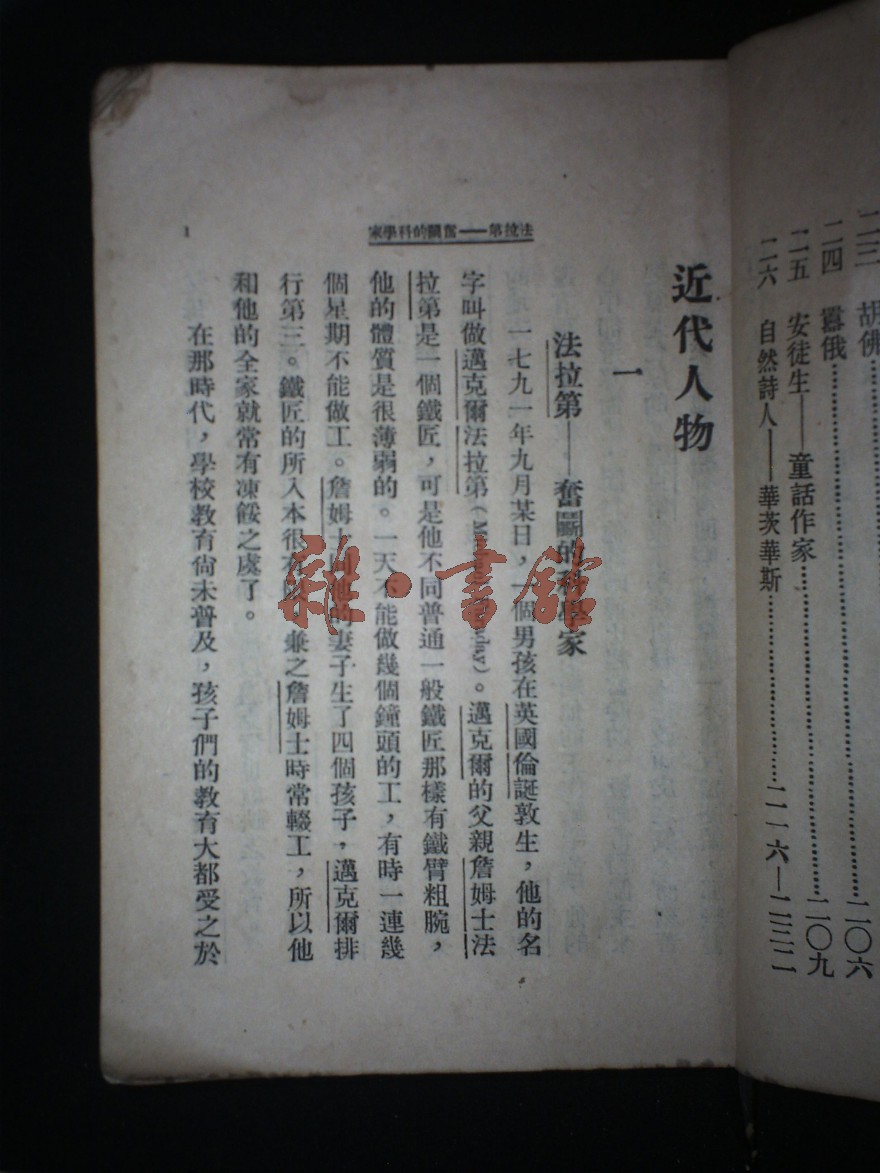 二三　胡佛……二〇六
二四　囂俄……二〇九
二五　安徒生——童話作家……
二六　自然詩人——華茨華斯……
法拉第——奮鬭的科學家
1
近代人物
一
法拉第——奮鬭的科學家
一七九一年九月某日，一個男孩在英國倫誕敦生，他的名
字叫做邁克爾法拉第（）。邁克爾的父親詹姆士法
拉第是一個鐵匠，可是他不同普通一般鐵匠那樣有鐵臂粗腕，
他的體質是很薄弱的。一天不能做幾個鐘頭的工，有時一連幾
個星期不能做工。詹姆士他的妻子生了四個孩子，邁克爾排
行第三。鐵匠的所入本很有，兼之詹姆士時常輟工，所以他
和他的全家就常有凍餒之虞了。
在那時代，學校教育尙未普及，孩子們的教育大都受之於
雜·書館